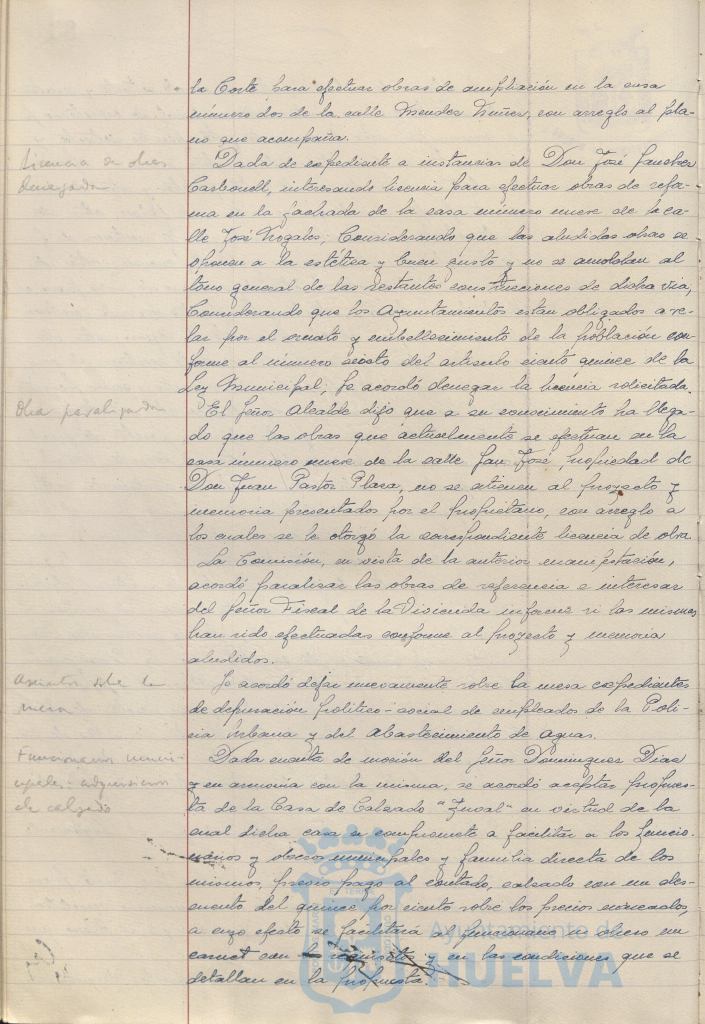 la Corte para efectuar obras de ampliación en la casa
número dos de la calle Mendez Nuñez, con arreglo al pla-
no que acompaña.
Licencia de obras
denegada
Dada de expediente a instancias de Don José Sanchez
Carbonell, interesando licencia para efectuar obras de refor-
ma en la fachada de la casa número nueve de la ca-
lle José Nogales; Considerando que las aludidas obras se
oponen a la estética y buen gusto y no se amoldan al
tono general de las restantes construcciones de dicha via,
Considerando que los Ayuntamientos estan obligados a ve-
lar por el ornato y embellecimiento de la población con-
forme al número sexto del artículo ciento quince de la
Ley Municipal; Se acordó denegar la licencia solicitada.
Obra paralizada
El Señor Alcalde dijo que a su conocimiento ha llega-
do que las obras que actualmente se efectuan en la
casa número nueve de la calle San José, propiedad de
Don Juan Pastor Plaza, no se atienen al proyecto y
memoria presentados por el propietario, con arreglo a
los cuales se le otorgó la correspondiente licencia de obra
La Comisión, en vista de la anterior manifestación,
acordó paralizar las obras de referencia e interesar
del Señor Fiscal de la Vivienda informe si las mismas
han sido efectuadas conforme al proyecto y memoria
aludidos.
Asuntos sobre la
mesa
Se acordó dejar nuevamente sobre la mesa expedientes
de depuración político-social de empleados de la Poli-
cia Urbana y del Abastecimiento de Aguas.
Funcionarios muni-
cipales: adquisicion
de calzado
Dada cuenta de moción del Señor Dominguez Diaz
y en armonia con la misma, se acordó aceptar propues-
ta de la Casa de Calzado "Juval" en virtud de la
cual dicha casa se compromete a facilitar a los funcio-
narios y obreros municipales y familia directa de los
mismos, previo pago al contado, calzado con un des-
cuento del quince por ciento sobre los precios marcados,
a cuyo efecto se facilitará al funcionario u obrero un
carnet con requisitos y en las condiciones que se
detallan en la propuesta.
Ayuntamiento de
HUELVA